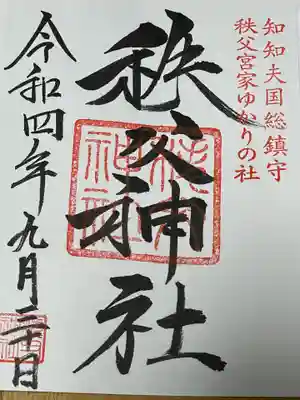 知知夫国総鎮守
秩父宮家ゆかりの社
秩父神社
秩父神社
令和四年九月三十日